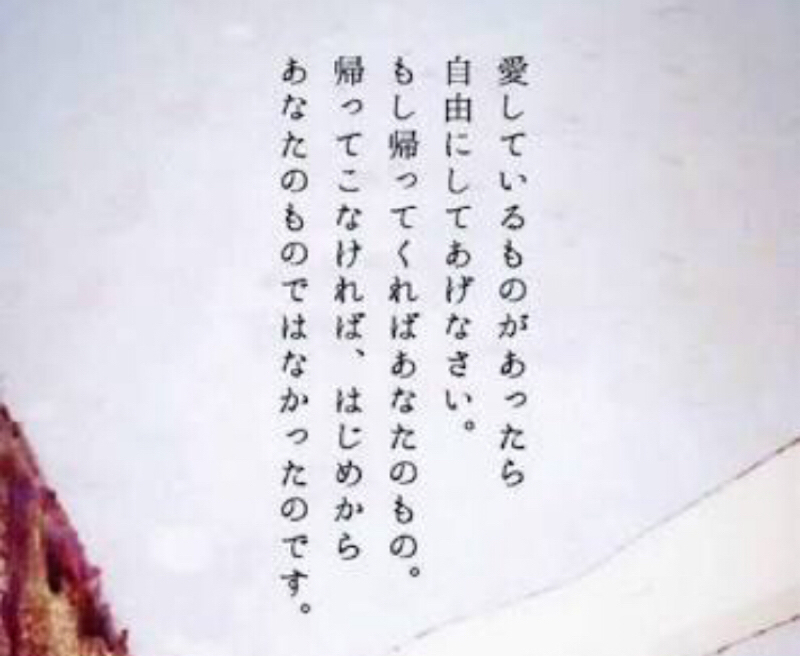 愛しているものがあったら
自由にしてあげなさい。
もし帰ってくればあなたのもの。
帰ってこなければ、はじめから
あなたのものではなかったのです。